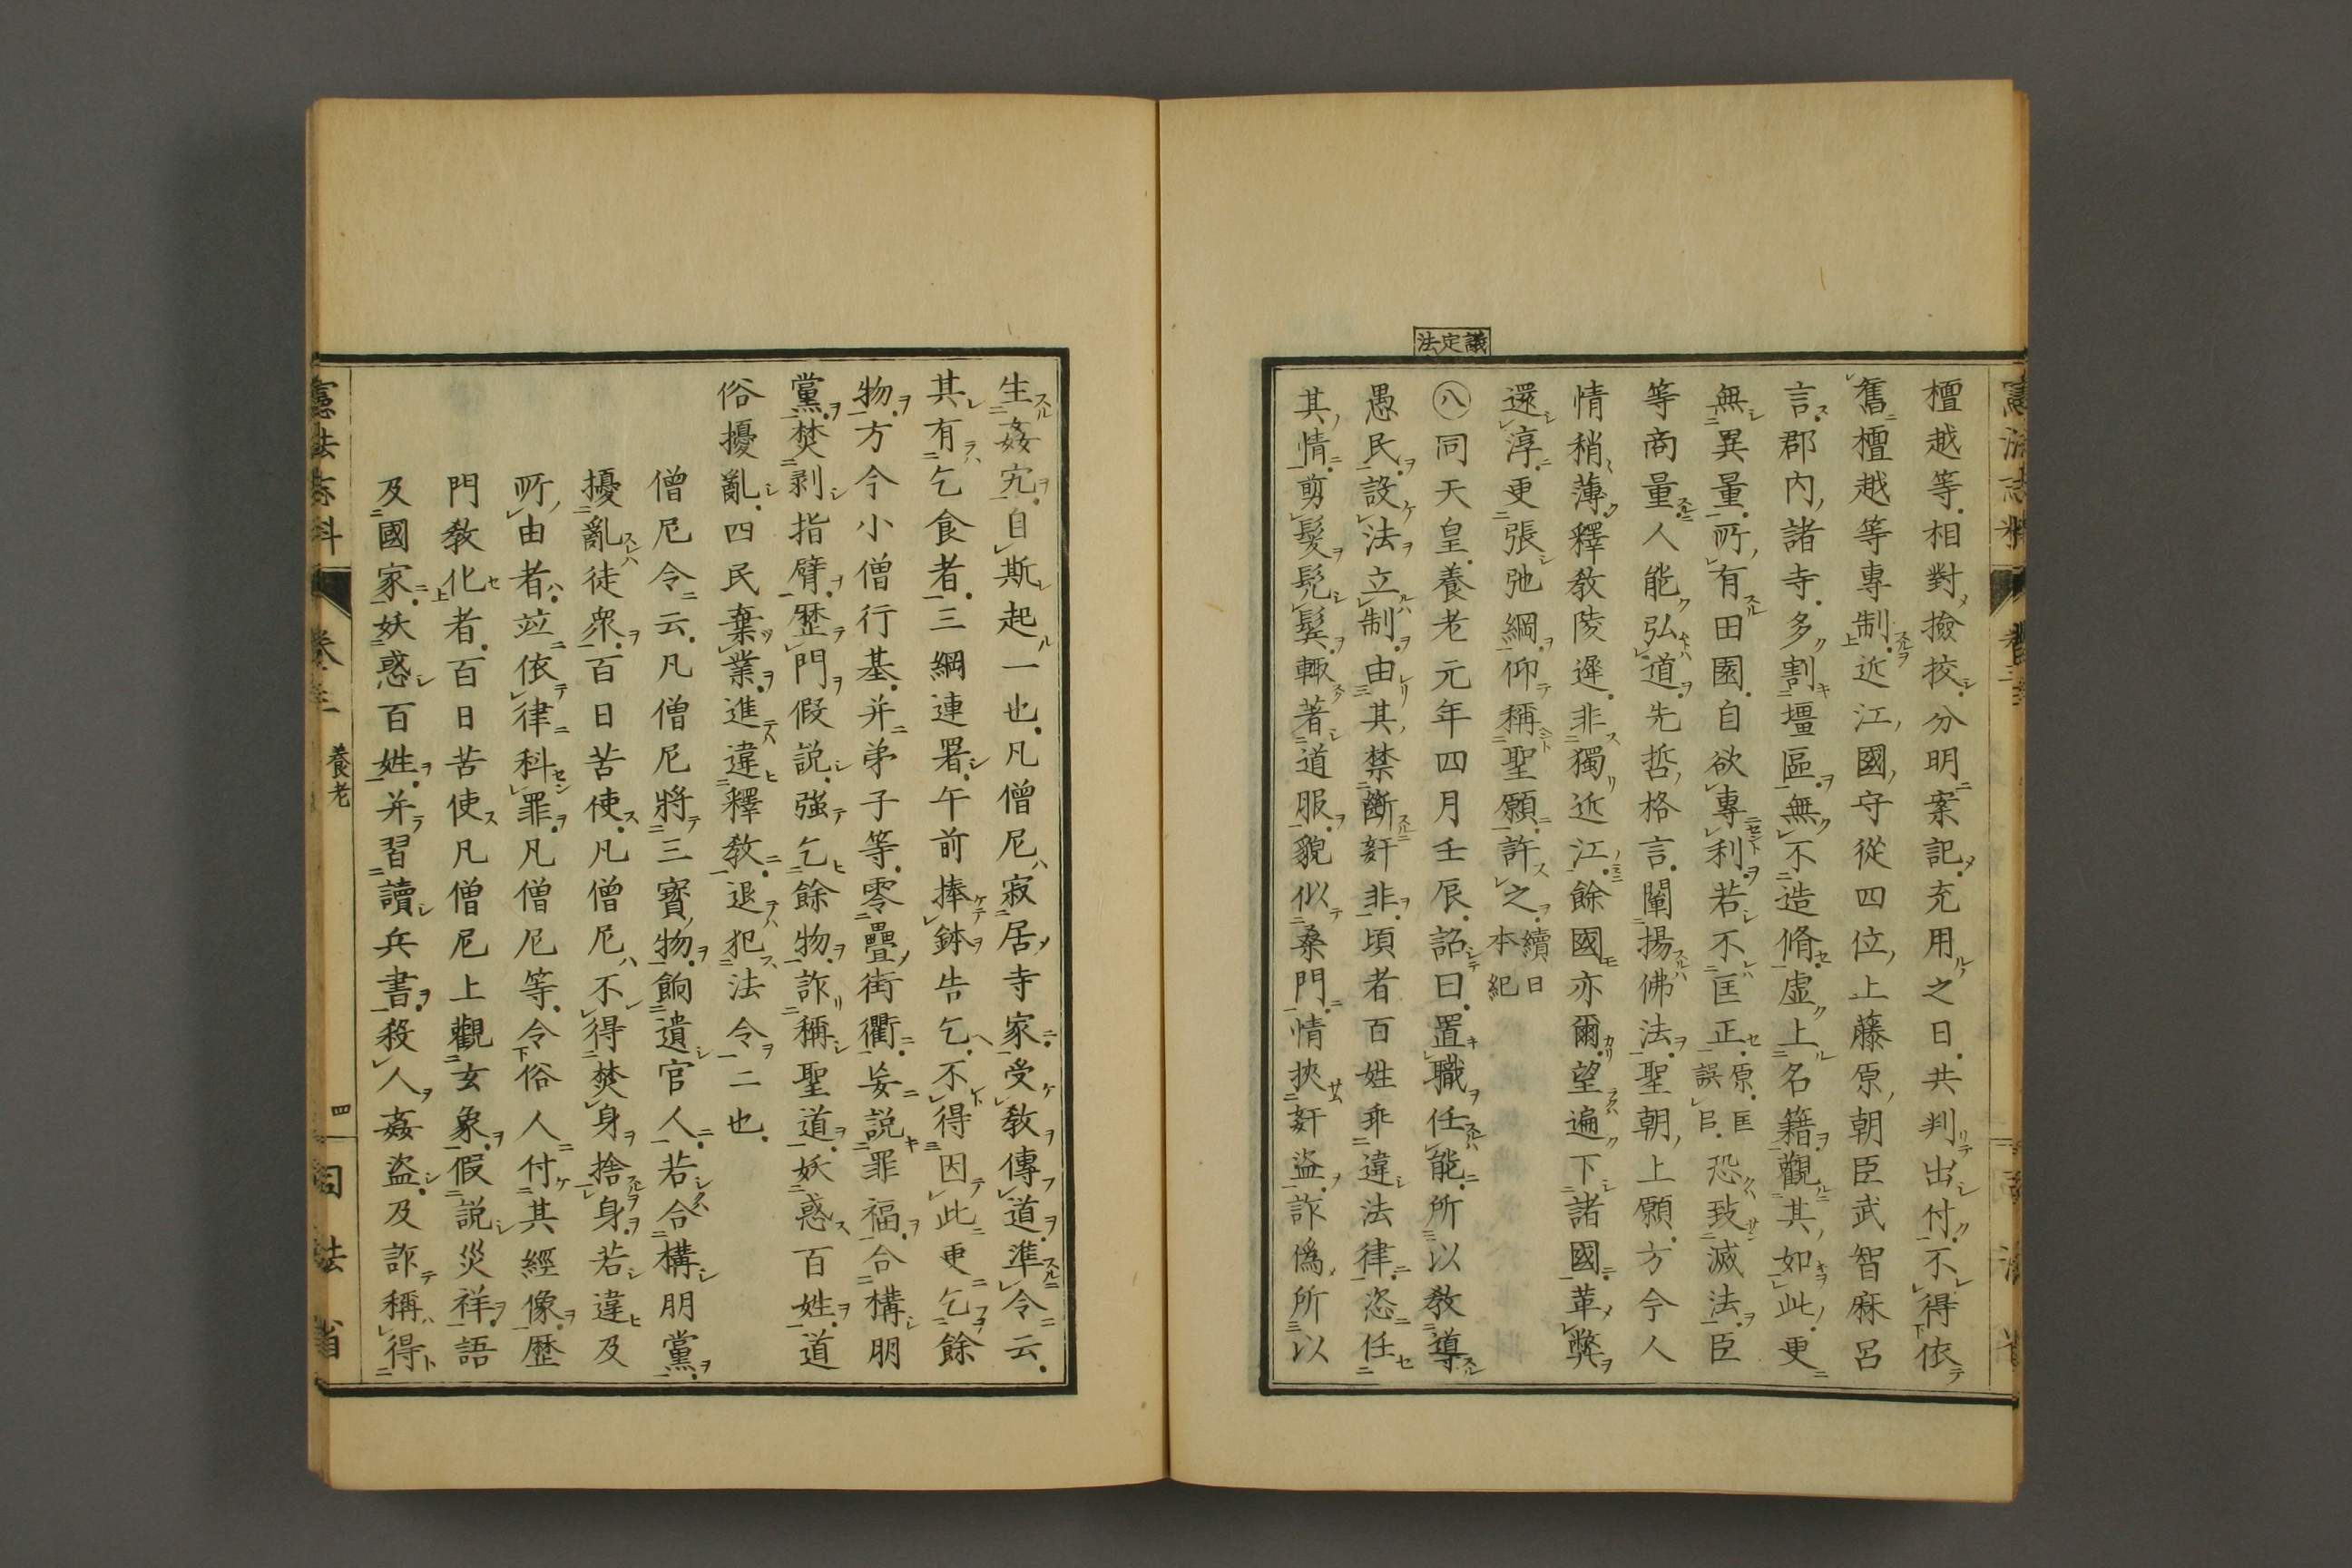 憲法志料
卷三
司法省
檀越等相對撿挍分明案記充用之日共判出付不得依
舊檀越等專制近江國守從四位上藤原朝臣武智麻呂
言郡內諸寺多割壃區無不造脩虛上名籍觀其如此更
無異量所有田園自欲專利若不匡正原匡誤臣恐致滅法臣
等商量人能弘道先哲格言闡揚佛法聖朝上願方今人
情稍薄釋教陵遲非獨近江餘國亦爾望遍下諸國革弊
還淳更張弛綱仰稱聖願許之續日本紀
議定法
㊇同天皇養老元年四月壬辰詔曰置職任能所以教導
愚民設法立制由其禁斷奸非頃者百姓乖違法律恣任
其情剪髮髡鬢輙著道服貌似桑門情挾奸盜詐僞所以
生姦宄自斯起一也凡僧尼寂居寺家受教傳道準令云
其有乞食者三綱連署午前捧鉢告乞不得因此更乞餘
物方今小僧行基并弟子等零疊街衢妄説罪福合構朋
黨焚剥指臂歷門假説強乞餘物詐稱聖道妖惑百姓道
俗擾亂四民棄業進違釋教退犯法令二也
僧尼令云凡僧尼將三寶物餉遺官人若合構朋黨
擾亂徒衆百日苦使凡僧尼不得焚身捨身若違及
所由者竝依律科罪凡僧尼等令俗人付其經像歷
門教化者百日苦使凡僧尼上觀玄象假説災祥語
及國家妖惑百姓并習讀兵書殺人姦盜及詐稱得
憲法志料
卷三
養老
四
司法省